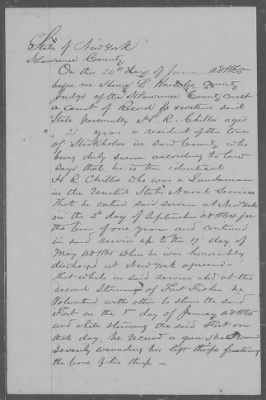 State of New York
St Lawrence County
On this 20th day of June AD 1865
before me Henry L County
Judge of the St Lawrence County Court
a Court of Record for within said
State personally H. R. Chilles aged
31 years a resident of the town
of Stockholm in said County who
being duly sworn according to law
says that he is the identical
H R Chilles who was a
in the United States Naval Service
That he entered said service at New York
on the 2d day of September AD 1864 for
the term of one year and continued
in said service up to the 17 day of
May AD 1865 when he was honorably
discharged at New York aforesaid
that while in said service and at the
second Storming of Fort Fisher he
Volunteered with others to storm the said
Fort on the day of January AD 1865
and while storming the said Fort on
that day, he received a gun shot wound
severely wounding his left thigh fracturing
the bone of his thigh —